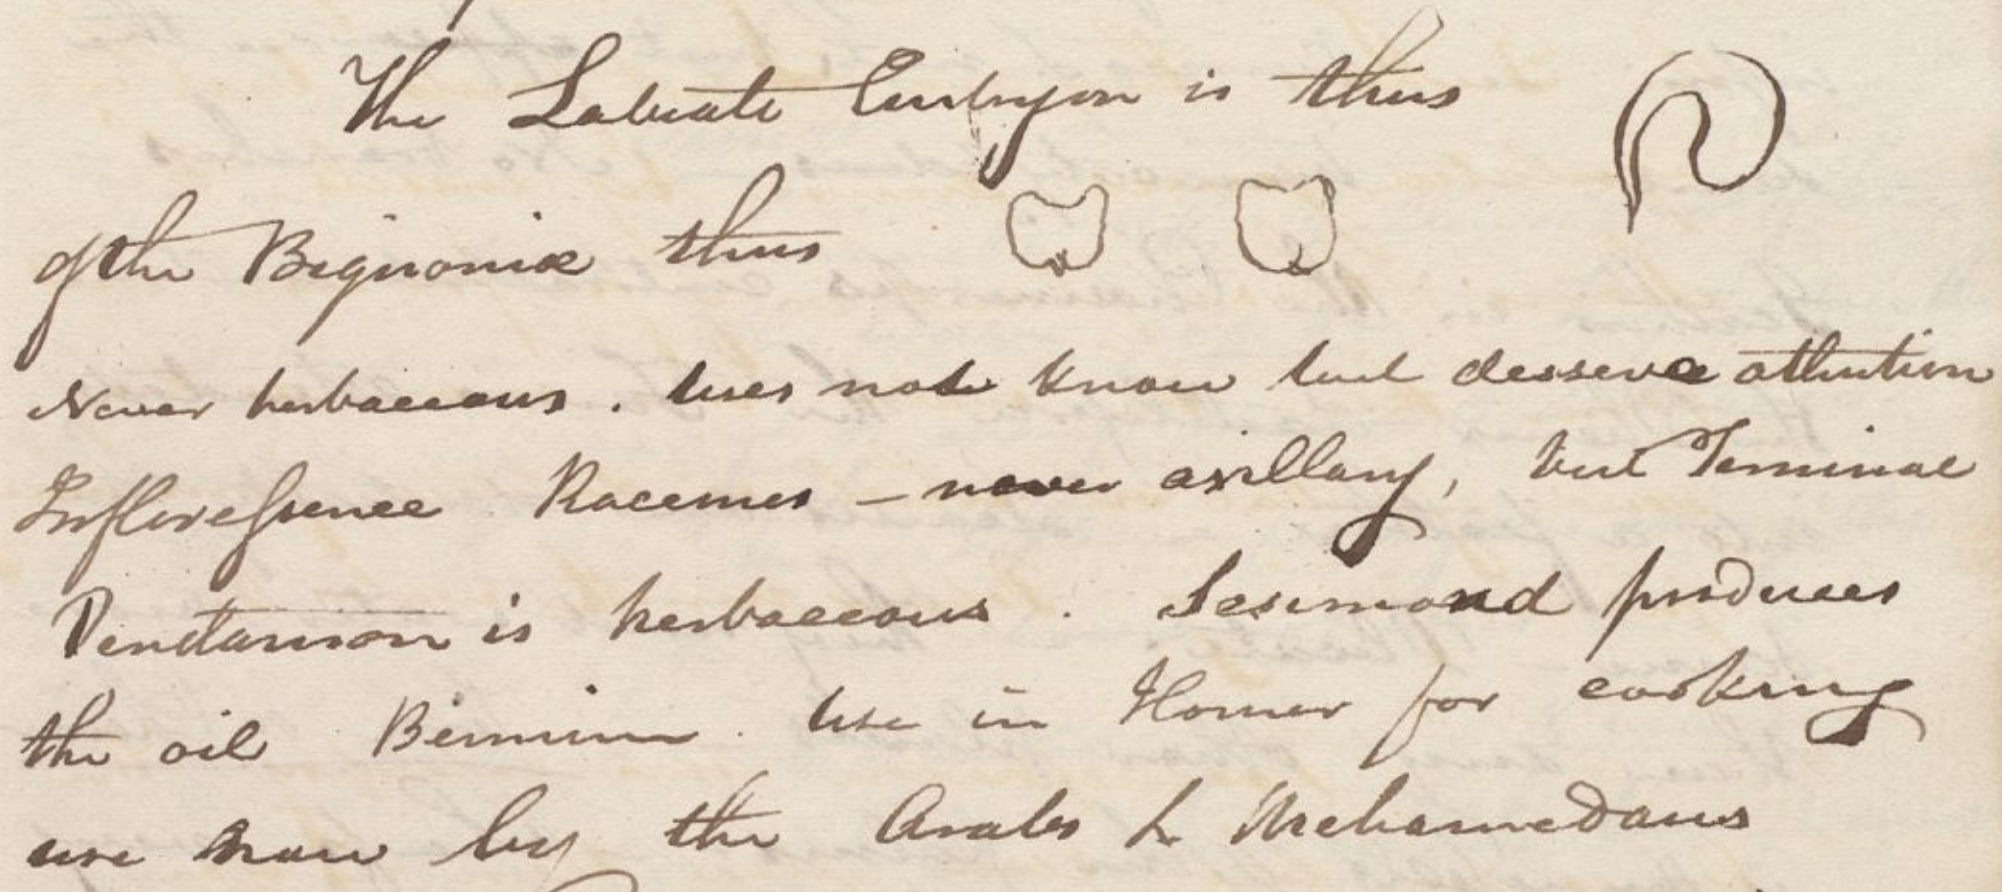 The Labiate Embryon is thus
of the Bignoniæ thus
Never herbaceous. lues not know but desserve attention
Inflorefsence Racemes – never axillary, but Terminal
is herbaceous. produces
the oil use in Homer for cooking
use now by the Arabs & Mehamedans